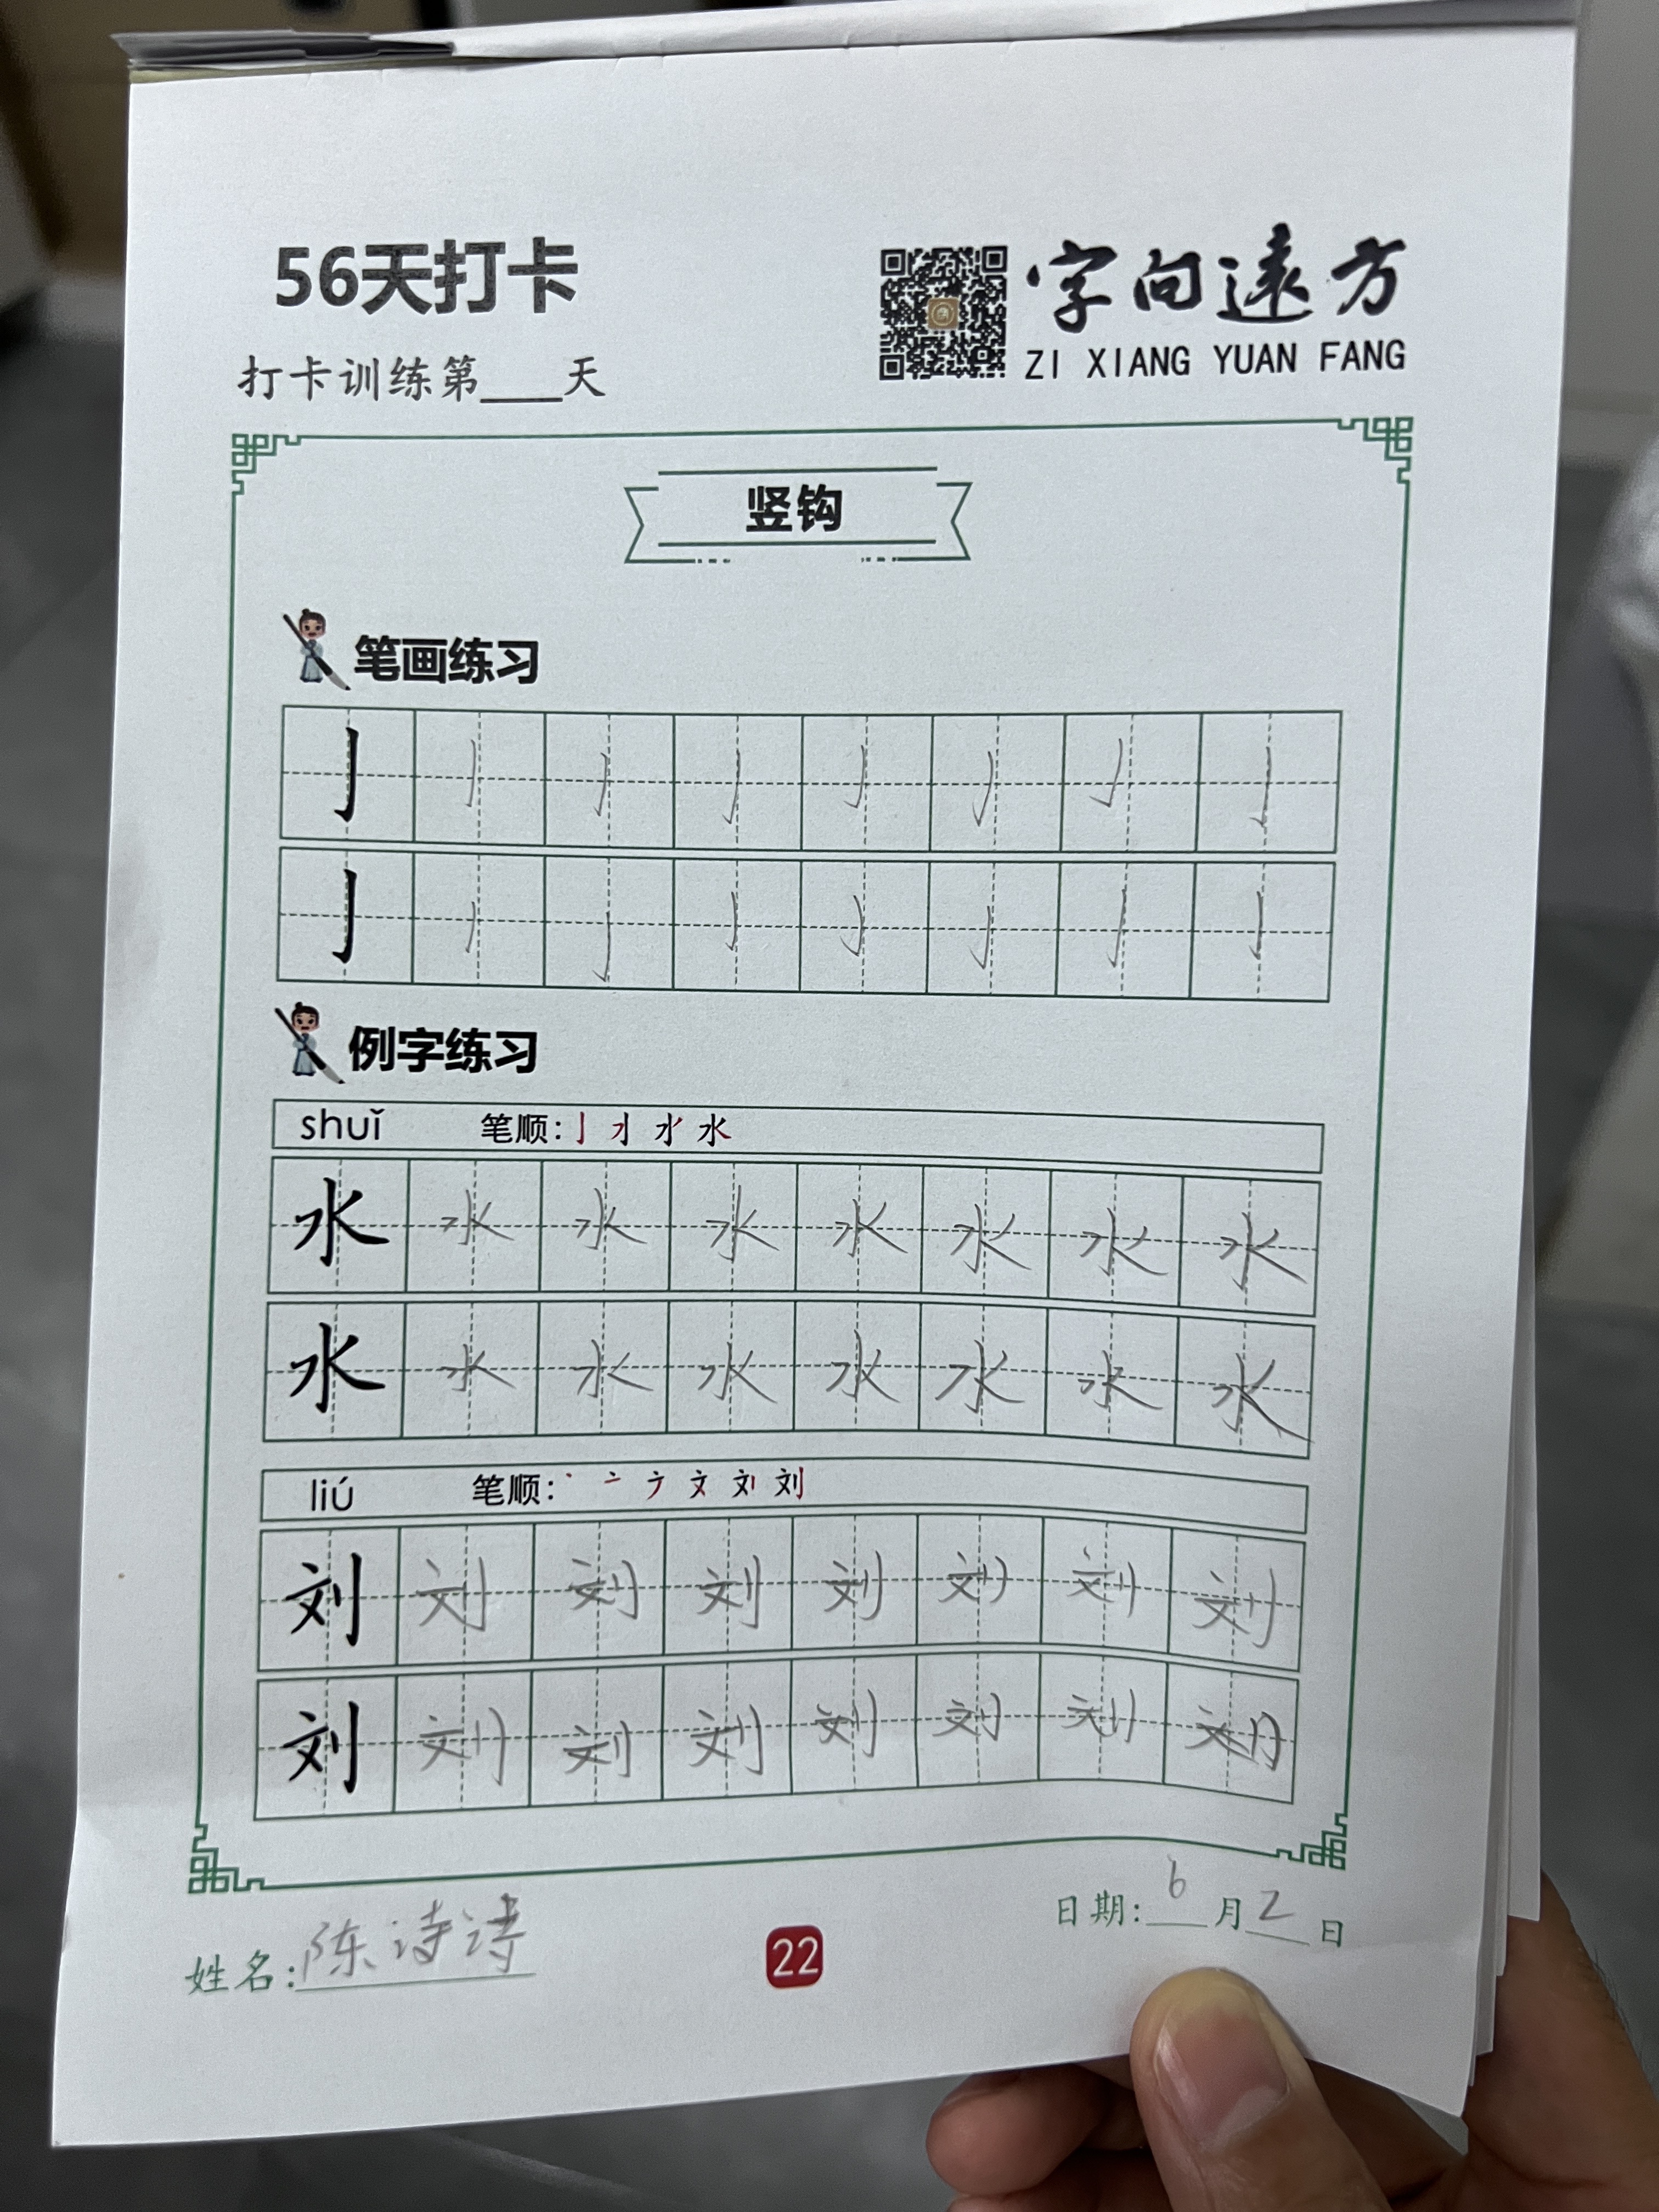 56天打卡
字向遠方
ZI XIANG YUAN FANG
打卡训练第____天
竖钩
笔画练习
亅 亅 亅 亅 亅 亅 亅 亅
亅 亅 亅 亅 亅 亅 亅 亅
例字练习
shuǐ 笔顺: 水
水 水 水 水 水 水 水 水
水 水 水 水 水 水 水 水
liú 笔顺: 丶 亠 文 刘
刘 刘 刘 刘 刘 刘 刘 刘
刘 刘 刘 刘 刘 刘 刘
姓名: 陈诗诗
22
日期: 6月2日